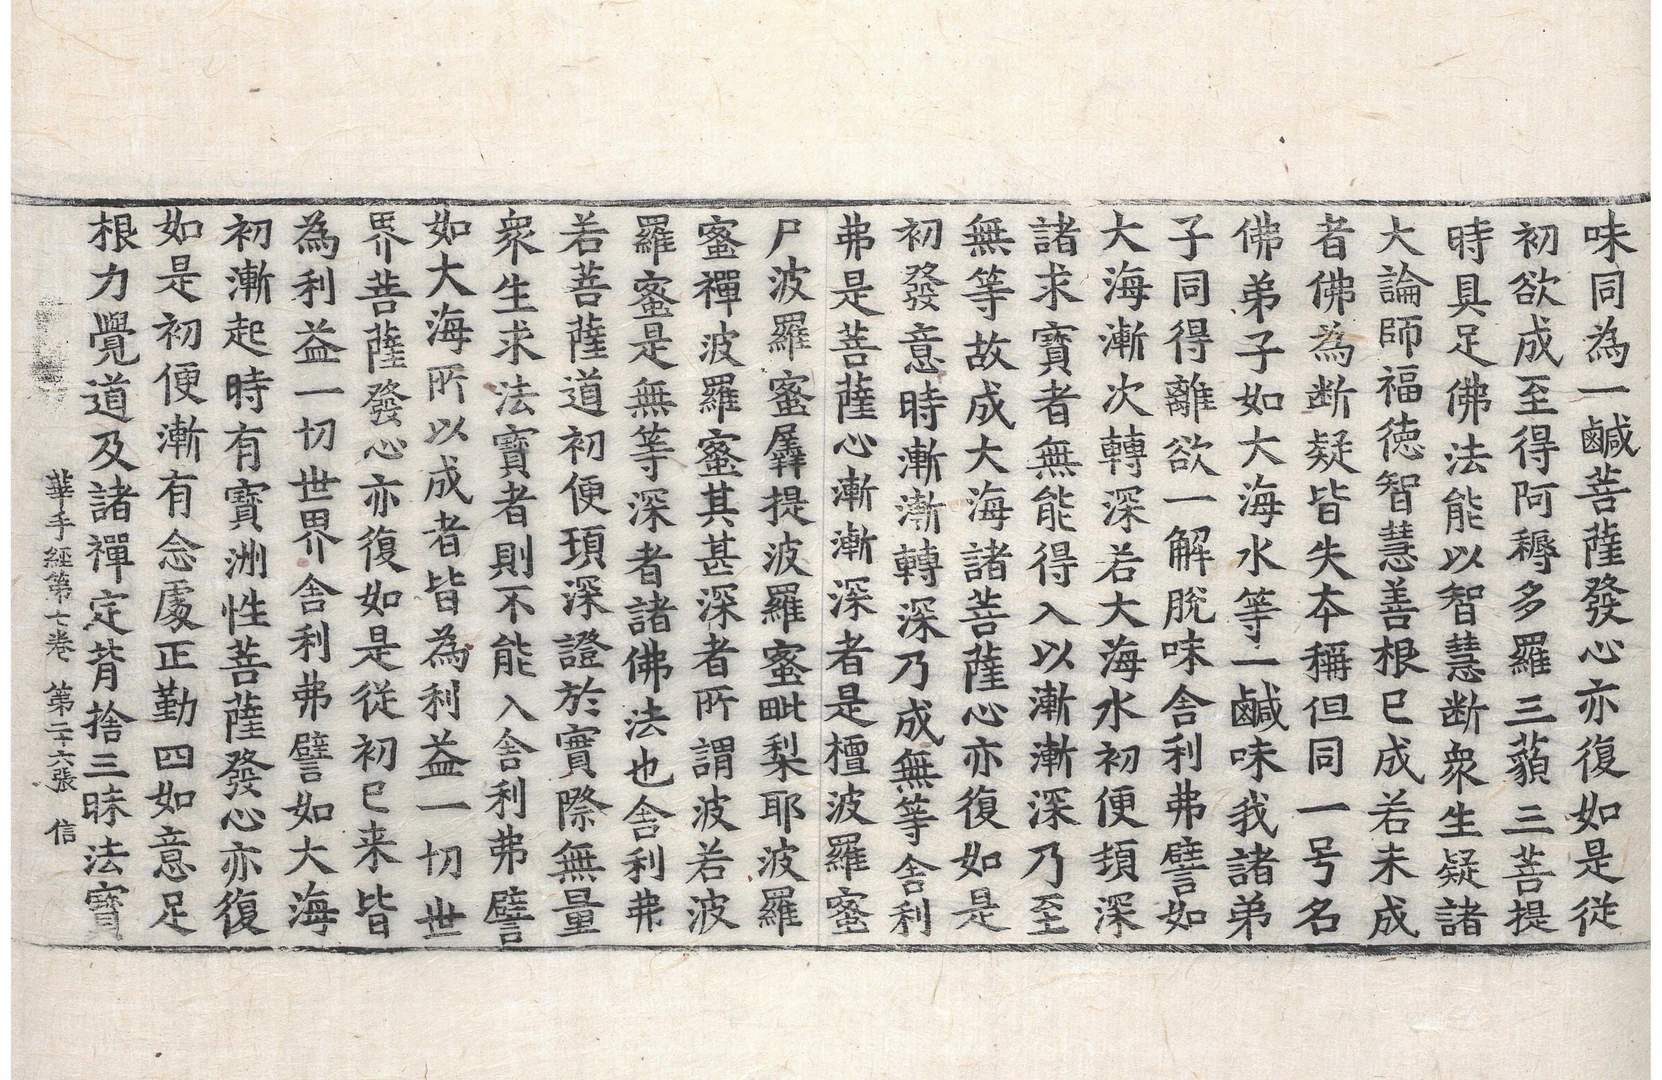 味同為一鹹菩薩發心亦復如是從
初欲成至得阿耨多羅三藐三菩提
時具足佛法能以智慧断衆生疑諸
大論師福徳智慧善根已成若未成
者佛為断疑皆失夲稱但同一号名
佛弟子如大海水等一鹹味我諸弟
子同得離欲一解脫味舍利弗譬如
大海漸次轉深若大海水初便頓深
諸求寶者無能得入以漸漸深乃至
無等故成大海諸菩薩心亦復如是
初發意時漸漸轉深乃成無等舍利
弗是菩薩心漸漸深者是檀波羅蜜
尸波羅蜜羼提波羅蜜毗梨耶波羅
蜜禪波羅蜜其甚深者所謂波若波
羅蜜是無等深者諸佛法也舍利弗
若菩薩道初便頊深證於實際無量
衆生求法寶者則不能入舍利弗譬
如大海所以成者皆為利益一切世
界菩薩發心亦復如是從初已来皆
為利益一切世界舍利弗譬如大海
初漸起時有寶洲性菩薩發心亦復
如是初便漸有念處正勤四如意足
根力覺道及諸禪定背捨三昧法寶
華手經第七卷 第二十六張 信